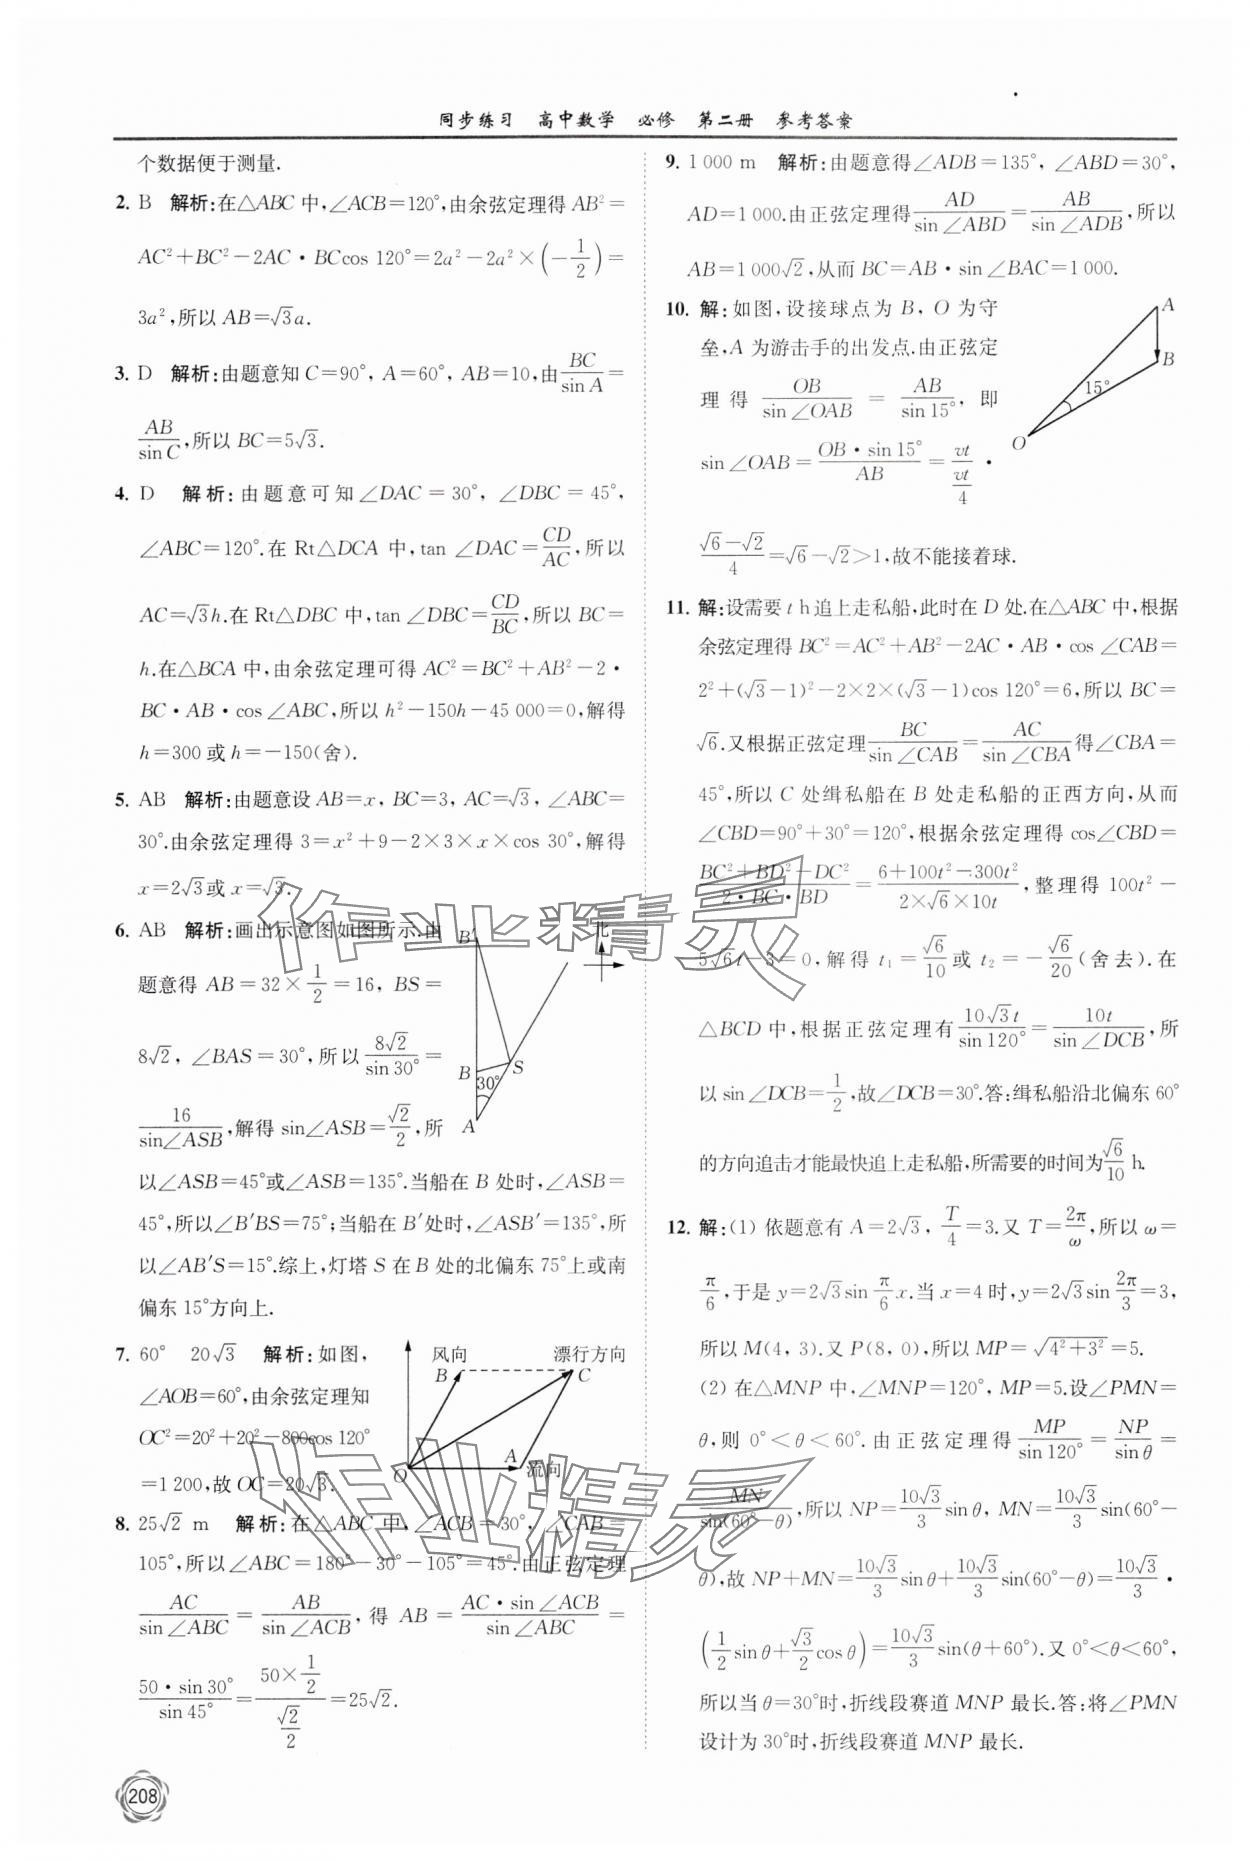 同步练习 高中数学 必修 第二册 参考答案
个数据便于测量.
2. B 解析:在△ABC 中,∠ACB=120°,由余弦定理得 AB²=
AC²+BC²-2AC·BCcos 120°=2a²-2a²×(-1/2)=
3a²,所以 AB=√3a.
3. D 解析:由题意知 C=90°, A=60°, AB=10,由BC/sin A=
AB/sin C,所以 BC=5√3.
4. D 解析:由题意可知∠DAC=30°, ∠DBC=45°,
∠ABC=120°.在 Rt△DCA 中,tan ∠DAC=CD/AC,所以
AC=√3h.在 Rt△DBC 中,tan ∠DBC=CD/BC,所以 BC=
h.在△BCA 中,由余弦定理可得 AC²=BC²+AB²-2·
BC·AB·cos∠ABC,所以 h²-150h-45 000=0,解得
h=300 或 h=-150(舍).
5. AB 解析:由题意设 AB=x, BC=3, AC=√3, ∠ABC=
30°.由余弦定理得 3=x²+9-2×3×x×cos 30°,解得
x=2√3或 x=√3.
6. AB 解析:画出示意图如图所示.由
题意得 AB=32×1/2=16, BS=
8√2, ∠BAS=30°,所以 8√2/sin 30°=
16/sin∠ASB,解得 sin∠ASB=√2/2,所
以∠ASB=45°或∠ASB=135°.当船在 B 处时,∠ASB=
45°,所以∠B′BS=75°;当船在 B′处时,∠ASB′=135°,所
以∠AB′S=15°.综上,灯塔 S 在 B 处的北偏东 75°上或南
偏东 15°方向上.
北
B′
B
S
30°
A
7. 60° 20√3 解析:如图,
∠AOB=60°,由余弦定理知
OC²=20²+20²-800cos 120°
=1 200,故 OC=20√3.
风向
漂行方向
B
C
O
A
流向
8. 25√2 m 解析:在△ABC 中,∠ACB=30°, ∠CAB=
105°,所以∠ABC=180°-30°-105°=45°.由正弦定理
AC/sin ∠ABC=AB/sin ∠ACB,得 AB=AC·sin ∠ACB/sin ∠ABC=
50·sin 30°/sin 45°=(50×1/2)/(√2/2)=25√2.
9. 1 000 m 解析:由题意得∠ADB=135°, ∠ABD=30°,
AD=1 000.由正弦定理得AD/sin ∠ABD=AB/sin ∠ADB,所以
AB=1 000√2,从而 BC=AB·sin ∠BAC=1 000.
10. 解:如图,设接球点为 B, O 为守
垒,A 为游击手的出发点.由正弦定
理得 OB/sin ∠OAB = AB/sin 15°,即
sin ∠OAB=OB·sin 15°/AB=vt/(vt/4)·
(√6-√2)/4=√6-√2>1,故不能接着球.
A
B
15°
O
11. 解:设需要 t h追上走私船,此时在 D 处.在△ABC 中,根据
余弦定理得 BC²=AC²+AB²-2AC·AB·cos ∠CAB=
2²+(√3-1)²-2×2×(√3-1)cos 120°=6,所以 BC=
√6.又根据正弦定理BC/sin ∠CAB=AC/sin ∠CBA得∠CBA=
45°,所以 C 处缉私船在 B 处走私船的正西方向,从而
∠CBD=90°+30°=120°,根据余弦定理得 cos∠CBD=
(BC²+BD²-DC²)/(2·BC·BD)=(6+100t²-300t²)/(2×√6×10t),整理得 100t²-
5√6t-3=0,解得 t₁=√6/10或 t₂=-√6/20(舍去).在
△BCD 中,根据正弦定理有10√3t/sin 120°=10t/sin ∠DCB,所
以 sin ∠DCB=1/2,故∠DCB=30°.答:缉私船沿北偏东 60°
的方向追击才能最快追上走私船,所需要的时间为√6/10 h.
12. 解:(1) 依题意有 A=2√3, T/4=3.又 T=2π/ω,所以 ω=
π/6,于是 y=2√3sin π/6 x.当 x=4 时,y=2√3sin 2π/3=3,
所以 M(4, 3).又 P(8, 0),所以 MP=√(4²+3²)=5.
(2) 在△MNP 中,∠MNP=120°, MP=5.设∠PMN=
θ,则 0°<θ<60°.由正弦定理得 MP/sin 120°=NP/sin θ=
MN/sin(60°-θ),所以 NP=10√3/3 sin θ, MN=10√3/3 sin(60°-
θ),故 NP+MN=10√3/3 sin θ+10√3/3 sin(60°-θ)=10√3/3·
(1/2 sin θ+√3/2 cos θ)=10√3/3 sin(θ+60°).又 0°<θ<60°,
所以当 θ=30°时,折线段赛道 MNP 最长.答:将∠PMN
设计为 30°时,折线段赛道 MNP 最长.
作业精灵
作业精灵
208